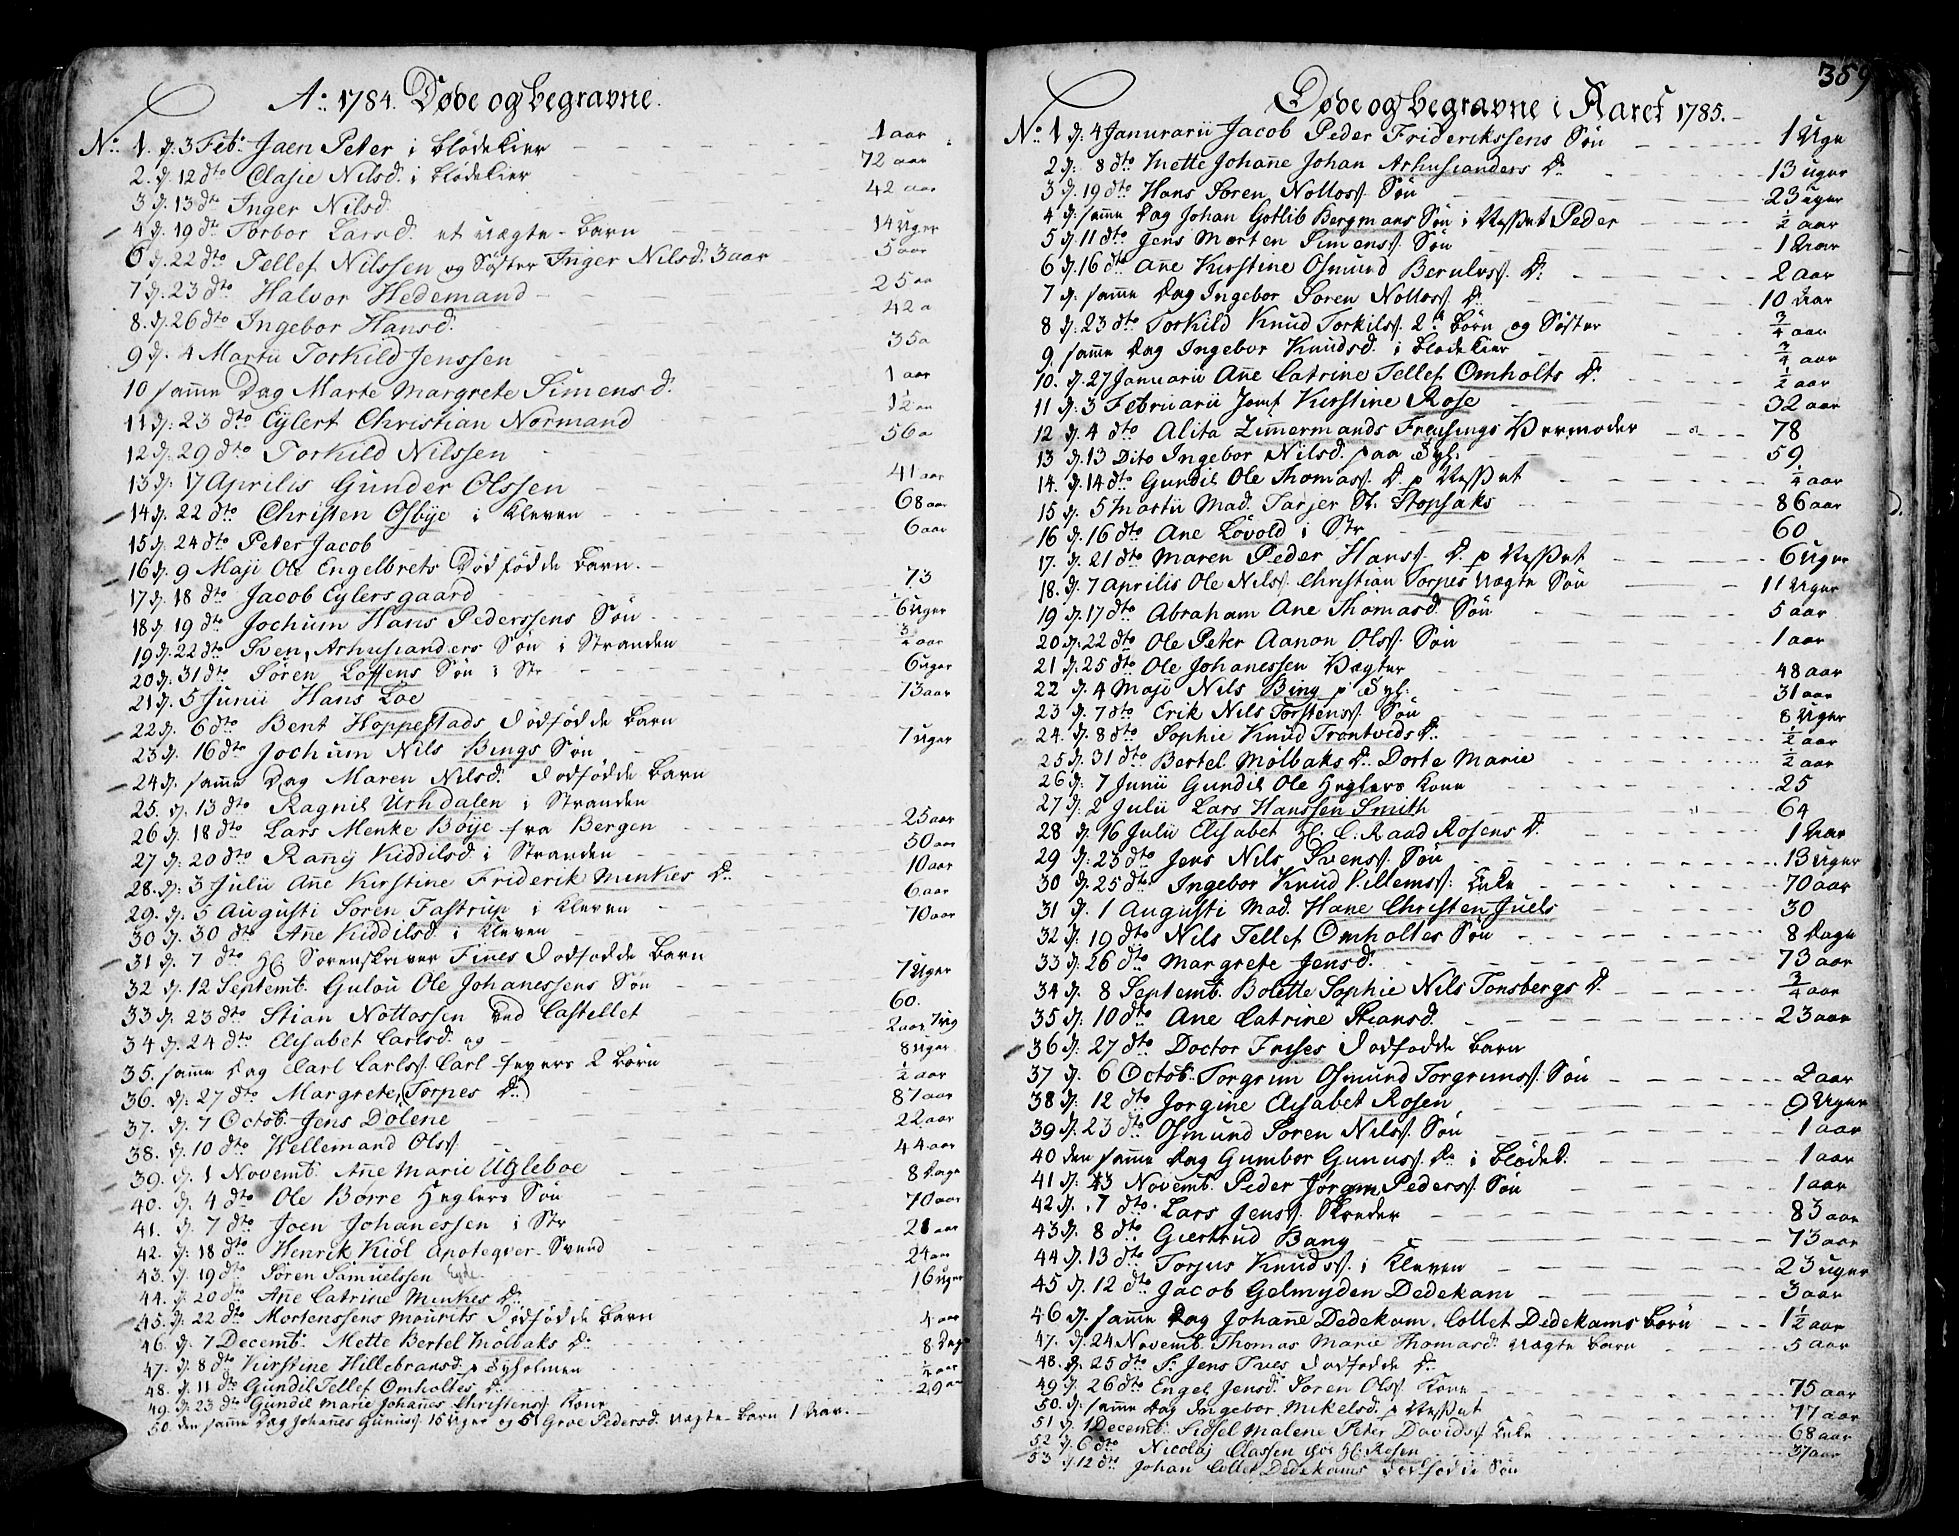 Aº 1784. Døde og begravne.
Nº 1. d. 3 Feb: Jaen Peter i Blødekier 1 aar
2. d. 12 dto Clasie Nilsd. i Blødekier 72 aar
3 d. 13 dto Inger Nilsd. 42 aar
4 d. 19 dto Torbor Larsd. et uægte Barn 14 uger
6 d. 22 dto Tellef Nilssen og Søster Inger Nilsd: 3 aar 5 aar
7 d. 23 dto Halvor Hedemand 25 aa
8. d. 26 dto Ingebor Hansd. 42 a
9 d. 4 Martii Torkild Jenssen 35 a
10 samme Dag Marte Margrete Simensd. 1 aar
11 d: 23 dto Eylert Christian Normand ½ aa
12 d: 29 dto Torkild Nilssen 56 a
13 d: 17 Aprilis Gunder Olssen 41 aar
14 d: 22 dto Christen Osbye i Kleven 68 aar
15 d: 24 dto Peter Jacob 6 aar
16 d. 9 Maji Ole Engelbrets Dødfødde Barn.
17 d. 18 dto Jacob Eylersgaard 73
18 d 19 dto Jochum Hans Pederssens Søn 6 uger
19 d. 22 dto Sven Arhusianders Søn i Stranden ¾ aar
20 d. 31 dto Søren Løffens Søn i Str 6 uger
21 d. 5 Junii Hans Loe 73 aar
22 d. 6 dto Bent Hoppestads Dødfødde Barn
23 d. 16 dto Jochum Nils Bings Søn 7 uger
24 d. samme Dag Maren Nilsd. Dødfødde Barn
25. d. 13 dto Ragnil Urhdalen i Stranden
26 d. 18 dto Lars Menke Bøye fra Bergen 25 aar
27 d: 20 dto Ranij Kiddilsd. i Stranden 50 aar
28. d: 3 Julii Ane Kirstine Friderik Menkes D. 10 aar
29. d. 5 Augusti Søren Fastrup i Kleven 6 aar
30 d. 30 dto Ane Kiddilsd. i Kleven 70 aar
31 d. 7 dto H. Sorenskriver Fines Dødfødde Barn
32 d. 12 Septemb. Gulou Ole Johanessens Søn 7 uger
33 d. 23 dto Stian Nottossen ved Castellet 60.
34 d. 24 dto Elisabet Carlsd. og 2 aar 7 ug
35. samme Dag Carl Carlss. Carl 2 Børn 8 uger
36. d: 27 dto Margrete Torpes D. ½ aar
37. d. 7 Octob. Jens Dolene 87 aar
38. d. 10 dto Hellemand Olss. 22 aar
39. d. 1 Novemb. Ane Marie Ugleboe 44 aar
40. d. 4 dto Ole Børre Heglers Søn 8 Dage
41. d. 7 dto Joen Johanessen i Str 70 aar
42. d: 18 dto Henrik Kiøl Apoteqver-Svend 21 aar
43. d. 19 dto Søren Samuelssen Eyde 24 aar
44. d. 20 dto Ane Catrine Menkes D. 16 uger
45. d. 22 dto Mortenssens Mourits Dødfødde Barn
46. d. 7 Decemb. Mette Bertel Mølbaks D. 4 aar
47. d. 8 dto Kirstine Hillebransd. p Syholmen 8 Dag
48. d. 11 dto Gundil Tellef Omholtes D. ½ aar
49. d. 23 dto Gundil Marie Johanes Christenss. Kone 29 aa
50. den samme Dag Johanes Gunuss. 15 Uger og 51 Groe Pedersd. uægte Barn 1 Aar.
359
Døde og begravne i Aaret 1785.
Nº 1 d. 4 Janurarii Jacob Peder Friderikssens Søn 1 Uge
2 d: 8 dto Mette Johane Johan Arhusianders D. 13 uger
3 d. 19 dto Hans Søren Nottoss. Søn 23 uger
4 d: samme Dag Johan Gotlib Bergmans Søn i Vesset Peder ½ aar
5 d. 11 dto Jens Morten Simenss. Søn 1 Aar
6 d. 16 dto Ane Kirstine Osmund Berulvs. D. 2 aar
7 d: samme Dag Ingebor Søren Nottoss. D. 10 Aar
8 d: 23 dto Torkild Knud Torkilss. 2 Børn og Søster ¾ aar
9. samme Dag Ingebor Knudsd. i Blødekier ¾ aar
10. d. 27 Januarii Ane Catrine Tellef Omholts D. ½ aar
11 d: 3 Februarii Jomf Kirstine Rose 32 aar
12 d. 4 dto Alita Zimermands Freisings Vermoder 78
13 d. 13 Dito Ingebor Nilsd. paa Syl. 59
14. d. 14 dto Gundil Ole Thomass. D. p Vesset ¼ aar
15 d. 5 Martii Mad. Tarjer St. Stopsaks 86 aar
16 d. 16 dto Ane Løvold i Str 60
17. d. 21 dto Maren Peder Hanss. D. p Vesset 6 uger
18. d. 7 Aprilis Ole Nilss. Christian Torpes uægte Søn 11 Uger
19 d. 17 dto Abraham Ane Thomasd. Søn 5 aar
20 d. 22 dto Ole Peter Aanon Olss. Søn 1 aar
21 d. 25 dto Ole Johanessen Vægter 48 aar
22 d. 4 Maji Nils Bing p Syl: 31 aar
23 d. 7 dto Erik Nils Torstenss. Søn 8 Uger
24. d. 8 dto Sophie Knud Trantveds D. ½ aar
25 d. 31 dto Bertel Mølbaks D. Dorte Marie ½ aar
26 d: 7 Junii Gundil Ole Heglers Kone 25
27 d. 2 Julii Lars Hanssen Smith 64
28 d. 16 Julii Elisabet H. C. Raad Rosens D. 1 Aar
29 d: 23 dto Jens Nils Svenss. Søn 13 uger
30 d. 25 dto Ingebor Knud Villemss. Enke 70 aar
31 d. 1 Augusti Mad. Hane Christen Juels 30
32 d. 19 dto Nils Tellef Omholtes Søn 8 Dage
33 d: 26 dto Margrete Jensd. 73 aar
34 d. 8 Septemb. Bolette Sophie Nils Tonsbergs D. ¾ aar
35 d. 10 dto Ane Catrine Stiansd. 23 aar
36 d. 27 dto Doctor Frises Dødfødde Barn
37 d. 6 Octob. Torgrim Osmund Torgrimss. Søn 2 aar
38 d. 12 dto Jorgine Elisabet Rosen 9 Uger
39 d. 23 dto Osmund Søren Nilss. Søn 1 aar
40 den samme Dag Gumbor Gunuss. D. i Blødek. 1 aar
41 d. 3 Novemb. Peder Jorgen Pederss. Søn 1 aar
42 d. 7 dto Lars Jenss. Skreder 83 aar
43 d. 8 dto Giertrud Bang 73 aar
44 d. 13 dto Torjus Knudss. i Kleven 23 uger
45 d. 12 dto Jacob Gelmyden Dedekam 3 aar
46 d. samme Dag Johane Dedekam. Collet Dedekams Børn 1½ aar
47. d. 24 Novemb. Thomas Marie Thomasd. uægte Barn 5 aar
48. d. 25 dto Sr. Jens Ives Dødfødde D.
49 d. 26 dto Engel Jensd. Søren Olss. Kone 75 aar
50. d: samme Dag Ingebor Mikelsd. p Vesset 77 aar
51 d. 1 Decemb: Sidsel Malene Peter Davidss. Enke 68 aar
52 d. 6 dto Nicolaj Classen hos H. Rosen 37 aar
53 d. 12 dto Johan Collet Dedekams Dødfødde Søn